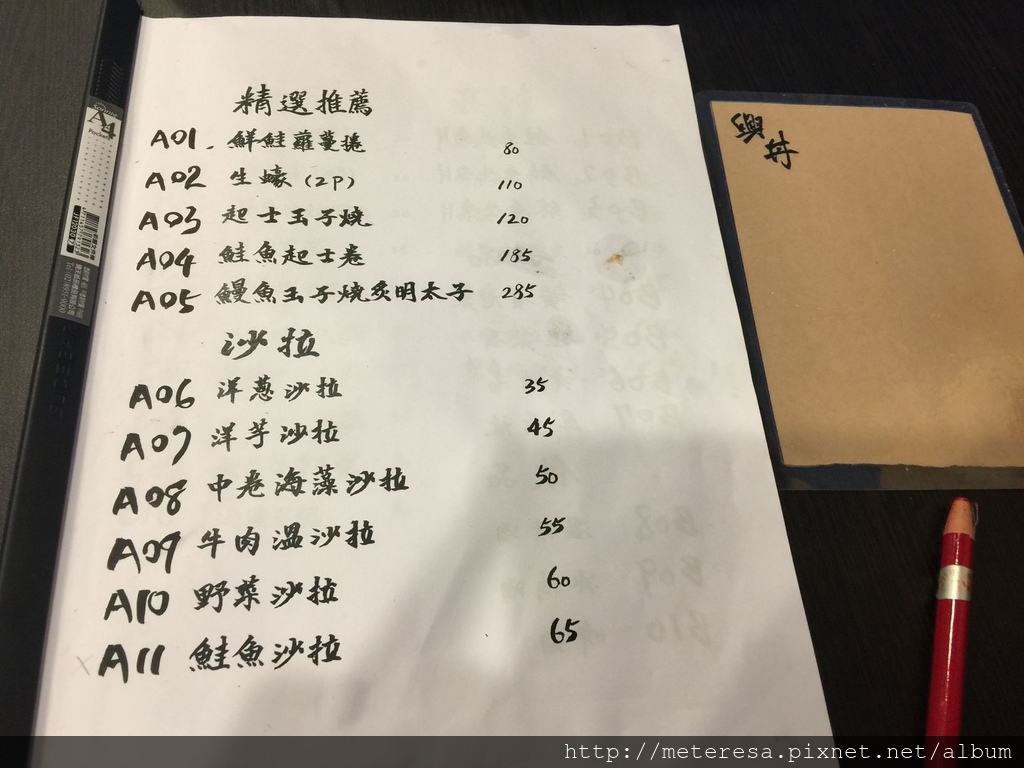 精選推薦
A01. 鮮鮭蘿蔓捲 80
A02 生蠔 (2P) 110
A03 起士玉子燒 120
A04 鮭魚起士卷 185
A05 鰻魚玉子燒炙明太子 285
沙拉
A06 洋蔥沙拉 35
A07 洋芋沙拉 45
A08 中卷海藻沙拉 50
A09 牛肉溫沙拉 55
A10 野菜沙拉 60
A11 鮭魚沙拉 65
興丼
A4
http://meteresa.pixnet.net/album